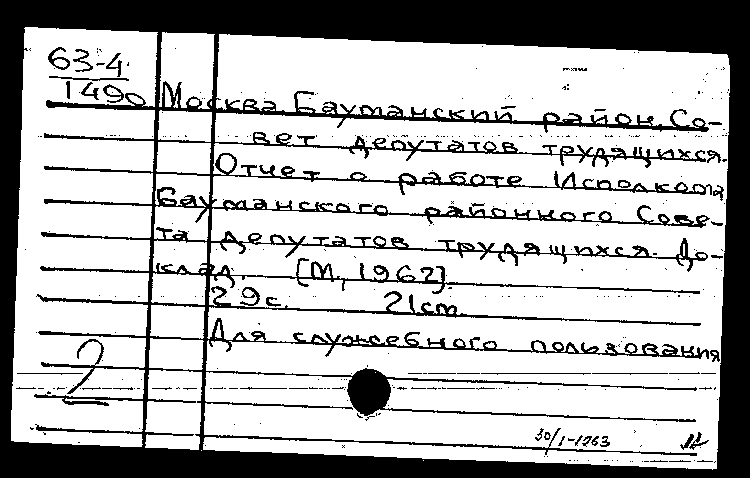 63-4
1490
Москва. Бауманский район. Со-
вет депутатов трудящихся.
Отчет о работе Исполкома
Бауманского районного Сове-
та депутатов трудящихся. До-
клад. [М., 1962].
29с. 21cm.
Для служебного пользования
2
30/1-1263